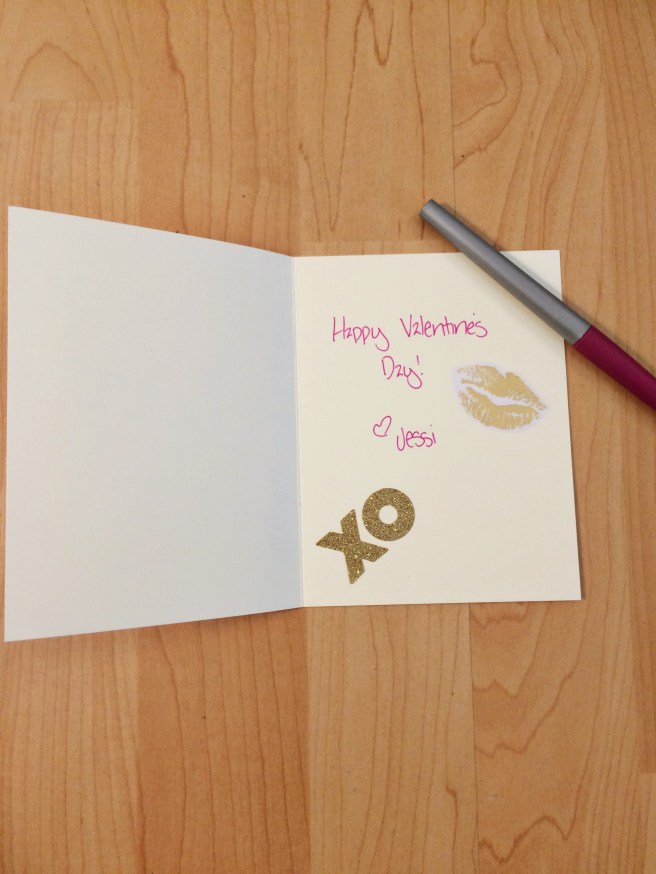 Happy Valentine's
Day!
♡ Jessi
XO